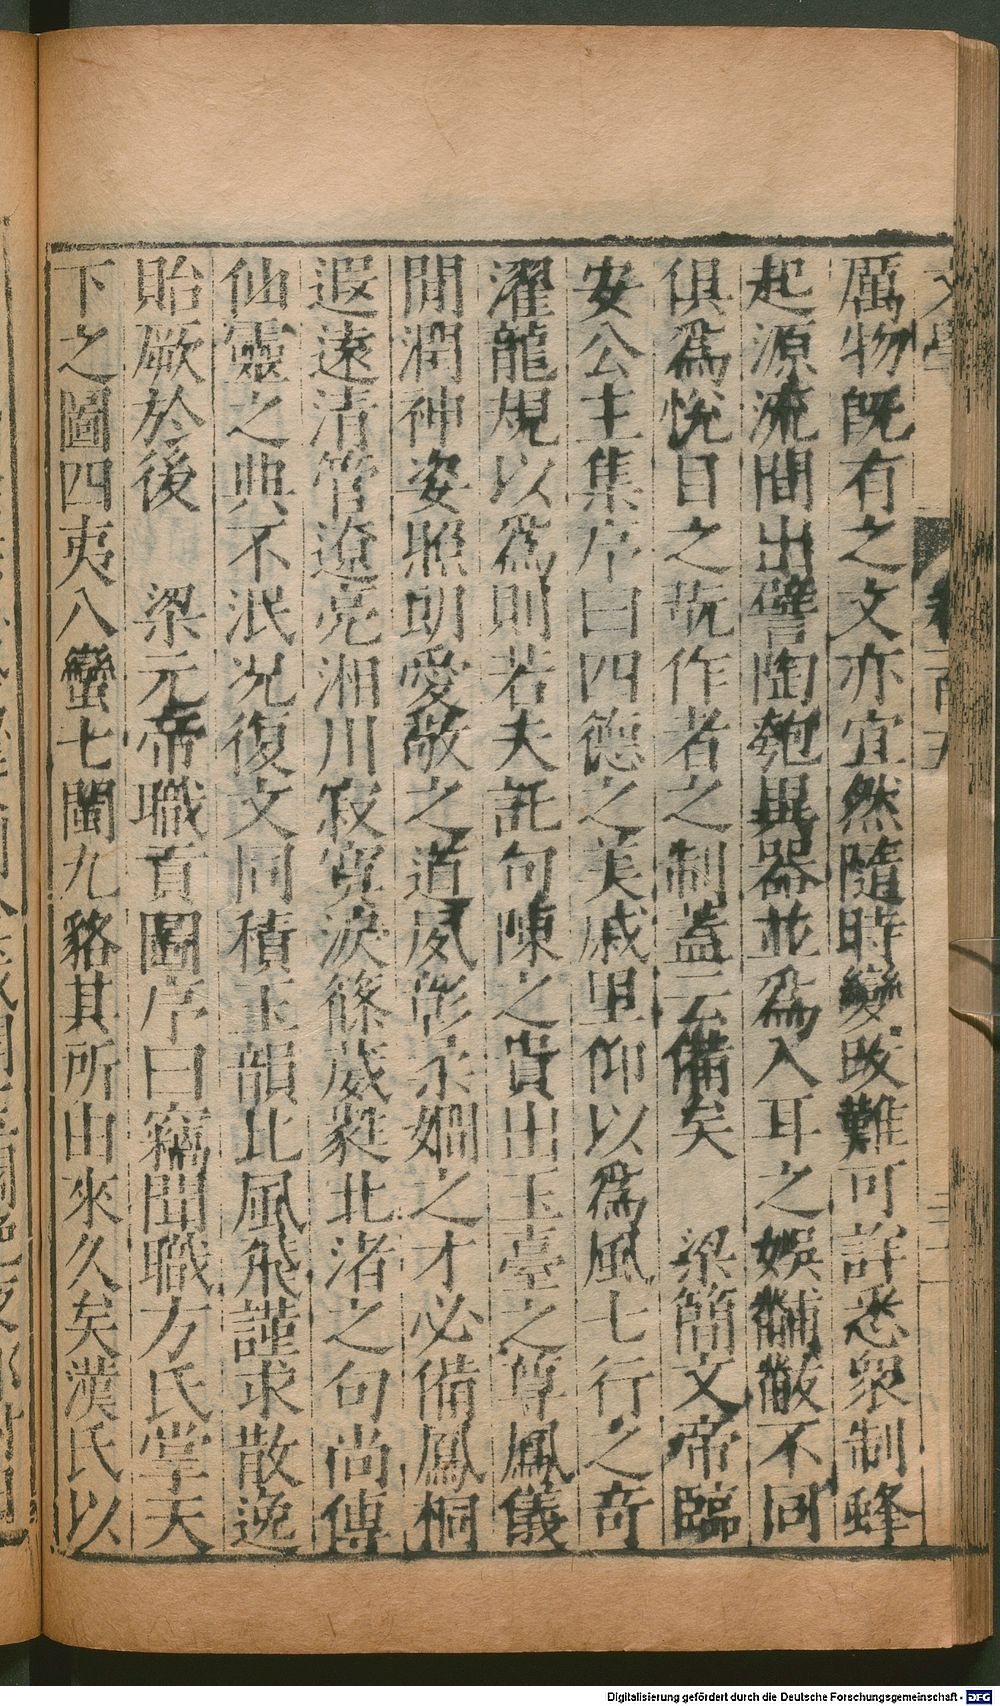 厲物既有之文亦宜然隨時變改難可詳悉衆制蜂
起源流間出譬陶匏異器並爲入耳之娛黼黻不同
俱爲悅目之翫作者之制蓋云備矣　梁簡文帝臨
安公主集序曰四德之美戚里仰以爲風七行之奇
濯龍規以爲則若夫託句陳之貴出玉臺之尊鳳儀
閒潤神姿照朗愛敬之道夙彰柔嫺之才必備鳳桐
遐遠清管遼亮湘川寂寞淚篠葳蕤北渚之句尚傳
仙靈之典不泯况復文同積玉韻比風飛謹求散逸
貽厥於後　梁元帝職貢圖序曰竊聞職方氏掌天
下之圖四夷八蠻七閩九貉其所由來久矣漢氏以
Digitalisierung gefördert durch die Deutsche Forschungsgemeinschaft - DFG